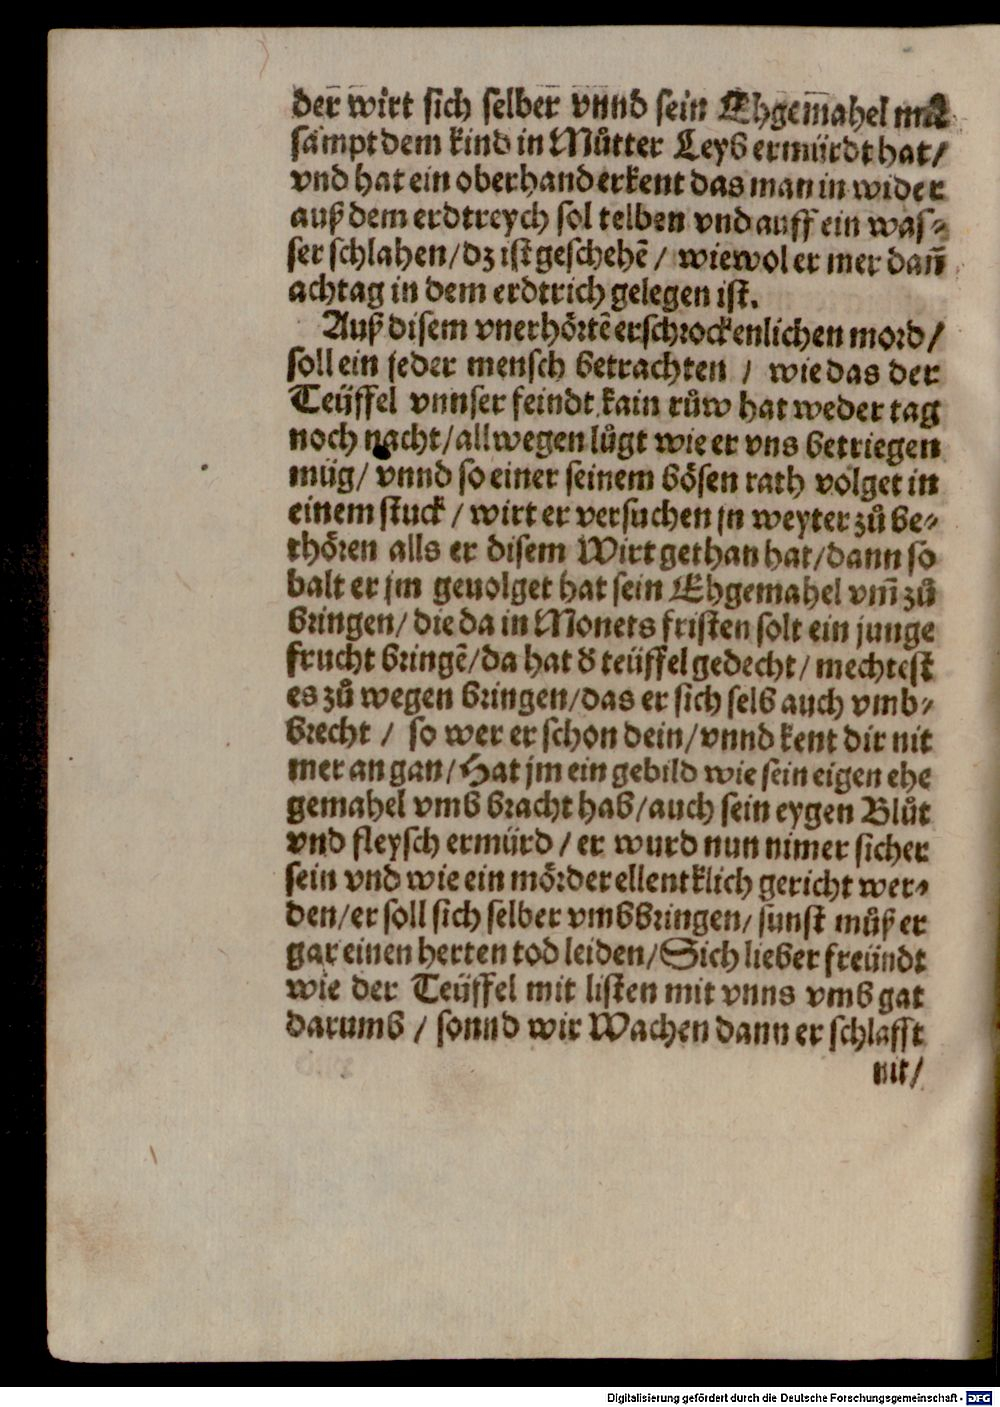 der wirt sich selber vnnd sein Ehgemahel mit
sampt dem kind in Můtter Leyb ermürdt hat/
vnd hat ein oberhand erkent das man in wider
auß dem erdtreych sol telben vnd auff ein was⸗
ser schlahen/dz ist geschehẽ/ wiewol er mer dañ
achtag in dem erdtrich gelegen ist.
Auß disem vnerhörtẽ erschrockenlichen mord/
soll ein jeder mensch betrachten / wie das der
Teüffel vnnser feindt kain růw hat weder tag
noch nacht/allwegen lůgt wie er vns betriegen
müg/ vnnd so einer seinem bösen rath volget in
einem stuck / wirt er versuchen jn weyter zů be⸗
thören alls er disem Wirt gethan hat/dann so
balt er jm geuolget hat sein Ehgemahel vm̃ zů
bringen/ die da in Monets fristen solt ein junge
frucht bringẽ/da hat d̕ teüffel gedecht/ mechtest
es zů wegen bringen/das er sich selb auch vmb⸗
brecht / so wer er schon dein/vnnd kent dir nit
mer an gan/Hat jm ein gebild wie sein eigen ehe
gemahel vmb bracht hab/auch sein eygen Blůt
vnd fleysch ermürd / er wurd nun nimer sicher
sein vnd wie ein mörder ellentklich gericht wer⸗
den/er soll sich selber vmbbringen/ sunst můß er
gar einen herten tod leiden/Sich lieber freündt
wie der Teüffel mit listen mit vnns vmb gat
darumb / sonnd wir Wachen dann er schlafft
nit/
Digitalisierung gefördert durch die Deutsche Forschungsgemeinschaft - DFG